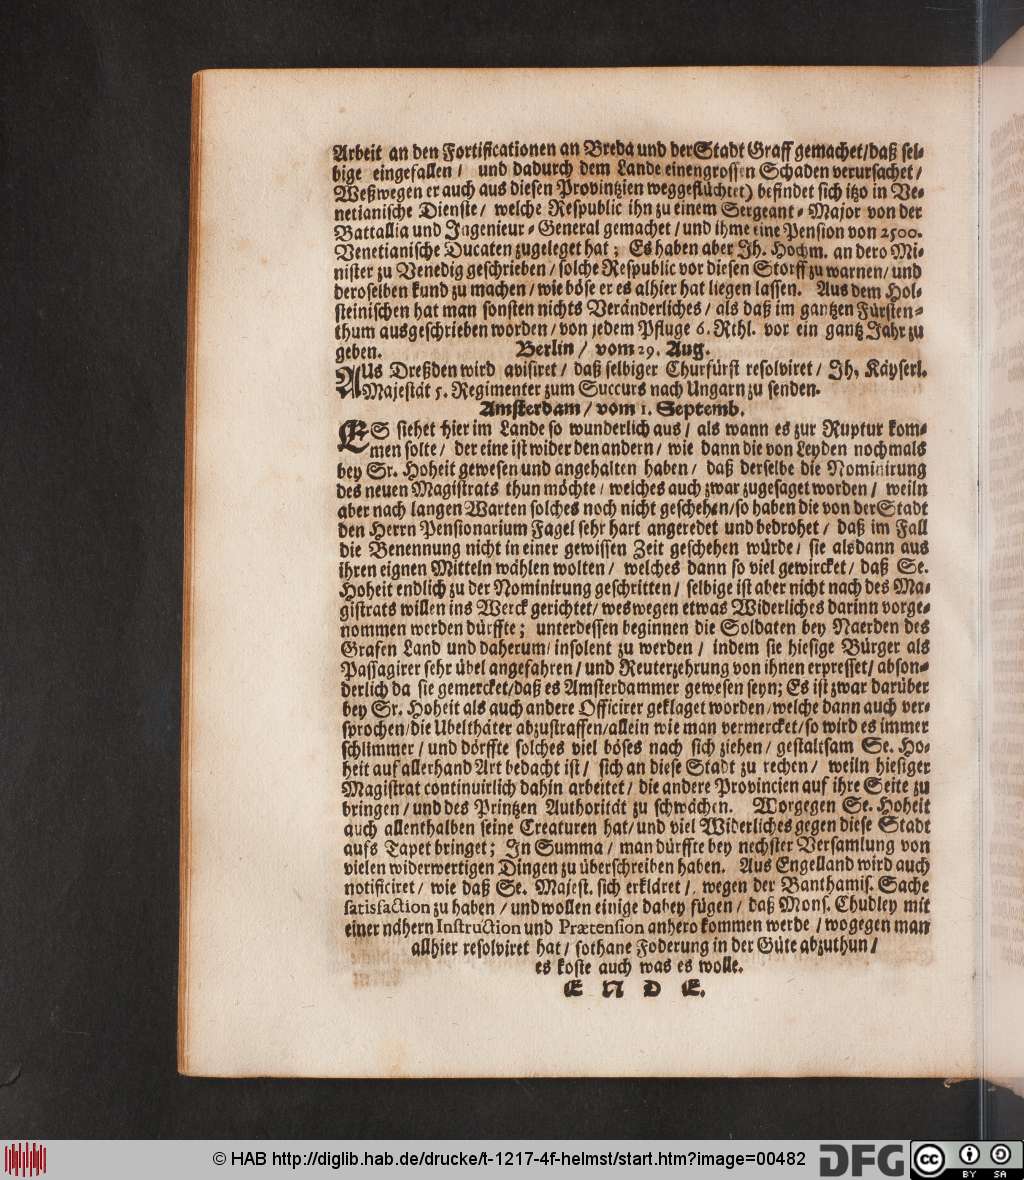 Arbeit an den Fortificationen an Breda und der Stadt Graff gemachet/daß sel-
bige eingefallen / und dadurch dem Lande einen grossen Schaden verursachet /
Weßwegen er auch aus diesen Provintzien weggeflüchtet) befindet sich itzo in Ve-
netianische Dienste / welche Respublic ihn zu einem Sergeant-Major von der
Battallia und Ingenieur-General gemachet / und ihme eine Pension von 2500.
Venetianische Ducaten zugeleget hat ; Es haben aber Ih. Hochm. an dero Mi-
nister zu Venedig geschrieben / solche Respublic vor diesen Storff zu warnen / und
deroselben kund zu machen / wie böse er es alhier hat liegen lassen. Aus dem Hol-
steinischen hat man sonsten nichts Veränderliches / als daß im gantzen Fürsten-
thum ausgeschrieben worden / von jedem Pfluge 6. Rthl. vor ein gantz Jahr zu
geben. Berlin / vom 29. Aug.
AUs Dreßden wird avisiret / daß selbiger Churfürst resolviret / Ih. Käyserl.
Majestät 5. Regimenter zum Succurs nach Ungarn zu senden.
Amsterdam / vom 1. Septemb.
ES siehet hier im Lande so wunderlich aus / als wann es zur Ruptur kom-
men solte / der eine ist wider den andern / wie dann die von Leyden nochmals
bey Sr. Hoheit gewesen und angehalten haben / daß derselbe die Nominirung
des neuen Magistrats thun möchte / welches auch zwar zugesaget worden / weiln
aber nach langen Warten solches noch nicht geschehen/so haben die von der Stadt
den Herrn Pensionarium Fagel sehr hart angeredet und bedrohet / daß im Fall
die Benennung nicht in einer gewissen Zeit geschehen würde / sie alsdann aus
ihren eignen Mitteln wählen wolten / welches dann so viel gewircket / daß Se.
Hoheit endlich zu der Nominirung geschritten / selbige ist aber nicht nach des Ma-
gistrats willen ins Werck gerichtet/ weswegen etwas Widerliches darinn vorge-
nommen werden dürffte ; unterdessen beginnen die Soldaten bey Naerden des
Grafen Land und daherum/ insolent zu werden / indem sie hiesige Bürger als
Passagirer sehr übel angefahren / und Reuterzehrung von ihnen erpresset/ abson-
derlich da sie gemercket/daß es Amsterdammer gewesen seyn; Es ist zwar darüber
bey Sr. Hoheit als auch andere Officirer geklaget worden/welche dann auch ver-
sprochen/die Ubelthäter abzustraffen/allein wie man vermercket/so wird es immer
schlimmer / und dörffte solches viel böses nach sich ziehen / gestaltsam Se. Ho-
heit auf allerhand Art bedacht ist / sich an diese Stadt zu rechen / weiln hiesiger
Magistrat continuirlich dahin arbeitet / die andere Provincien auf ihre Seite zu
bringen / und des Printzen Authorität zu schwächen. Worgegen Se. Hoheit
auch allenthalben seine Creaturen hat/ und viel Widerliches gegen diese Stadt
aufs Tapet bringet ; In Summa / man dürffte bey nechster Versamlung von
vielen widerwertigen Dingen zu überschreiben haben. Aus Engelland wird auch
notificiret / wie daß Se. Majest. sich erkläret / wegen der Banthamis. Sache
satisfaction zu haben / und wollen einige dabey fügen / daß Mons. Chudley mit
einer nähern Instruction und Prætension anhero kommen werde / wogegen man
allhier resolviret hat / sothane Foderung in der Güte abzuthun /
es koste auch was es wolle.
E N D E.
© HAB http://diglib.hab.de/drucke/t-1217-4f-helmst/start.htm?image=00482
DFG
cc BY SA